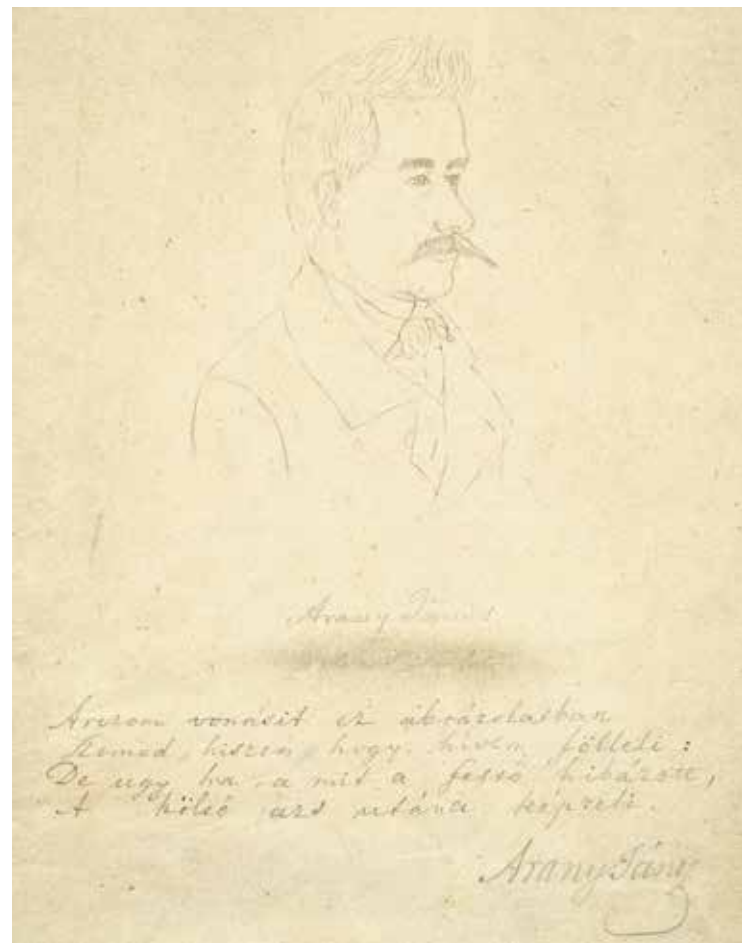 Arany János
Arczom vonásit ez ábrázolatban
Szemed, hiszem, hogy híven fölleli:
De ugy ha a mit a festő hibázott,
A költő azt utána képzeli.
Arany János